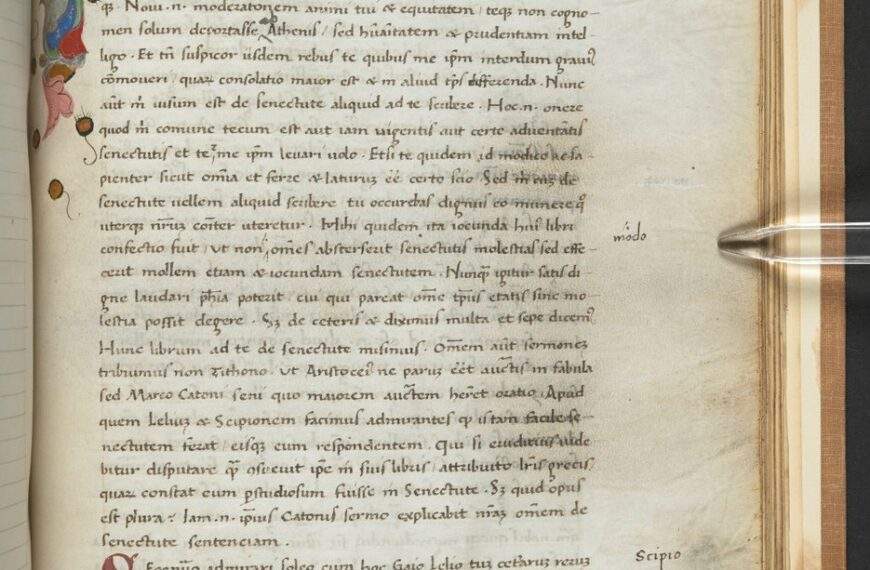 qȝ. Noui .n. moderationem animi tui & equitatem / teqȝ non cogno-
men solum deportasse Athenis / sed hũaitatem & prudentiam intel-
ligo. Et tñ suspicor iisdem rebus te quibus me ipm interdum graui9
cõmoueri / quaꝝ consolatio maior est & in aliud tps differenda. Nunc
aũt m̃ uisum est de senectute aliquid ad te scribere. Hoc .n. onere
quod m̃ comune tecum est aut iam urgentis aut certe aduentãtis
senectutis et te me ipm leuari uolo. Etsi te quidem id modice ac sa-
pienter sicut omĩa et ferre & laturuȝ eẽ certo scio Sed m̃ cuȝ de
senectute uellem aliquid scribere tu occurebas dignus eo munere q̃
uterqȝ nr̃uȝ coĩter uteretur. Mihi quidem ita iocunda huiˢ libri
confectio fuit / ut non omẽs absterserit senectutis molestias sed effe-
cerit mollem etiam & iocundam senectutem. Nunqȝ igitur satis di-
gne laudari phĩa poterit. cui qui pareat omẽ tpus etatis sine mo-
lestia possit degere. Sȝ de ceteris & diximus multa et sepe dicem9
Hunc librum ad te de senectute misimus. Omẽm aũt sermoneȝ
tribuimus non Tithono. ut Aristoceˢ ne parũ eẽt auctis in fabula
sed Marco Catoni seni quo maiorem auctem herẽt oratio. Apud
quem Leliuȝ & Scipionem facimus admirantes ꝙ is tam facile se-
nectutem ferat / eisqȝ eum respondentem. Qui si eruditius uide
bitur disputare q̃ȝ osueuit ipẽ in suis libris / attribuito lr̃is grecis,
quaꝝ constat eum ꝑstudiosum fuisse in Senectute. Sȝ quid opus
est plura? Iam .n. ipĩus Catonis sermo explicabit nr̃aȝ omẽm de
senectute sentenciam.
admirari soleo cum hoc Gaio Lelio tuȝ cetãruȝ reruȝ
mõdo
Scipio